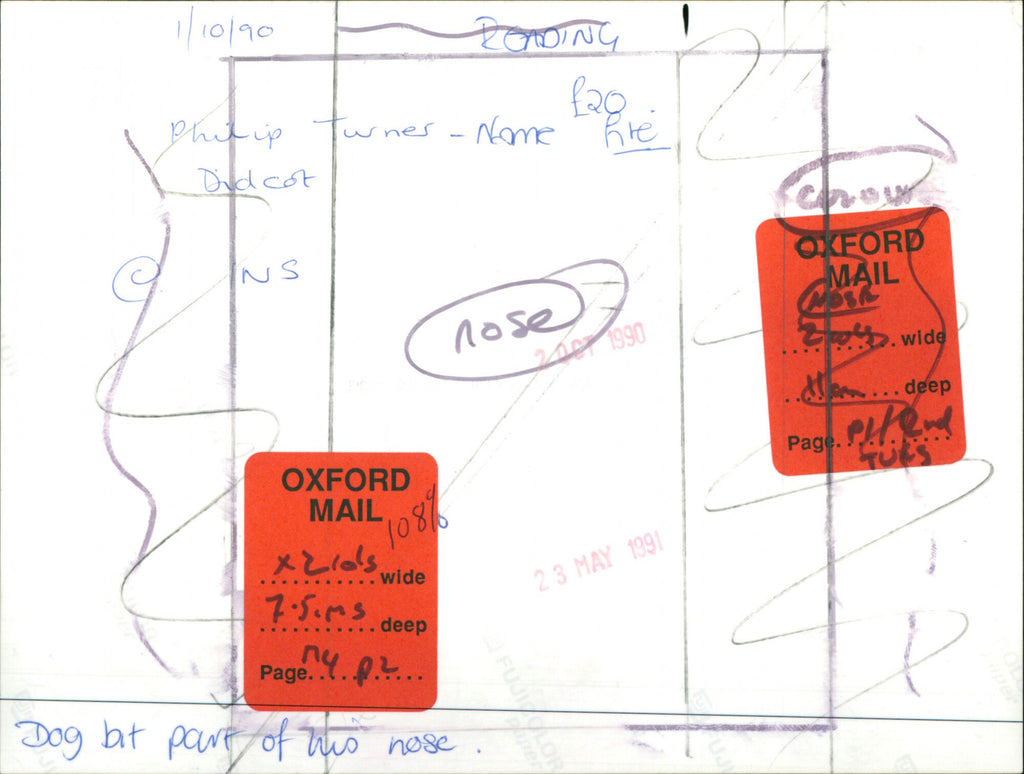 1/10/90
READING
£20
Philip Turner - Name
Didcot
© NS
nose
2 OCT 1990
23 MAY 1991
OXFORD
MAIL
wide
deep
Page
P1/2nd
TUES
OXFORD
MAIL
108%
x 2 cols wide
7.5cms deep
Page p2
Dog bit part of his nose.
FUJICOLOR